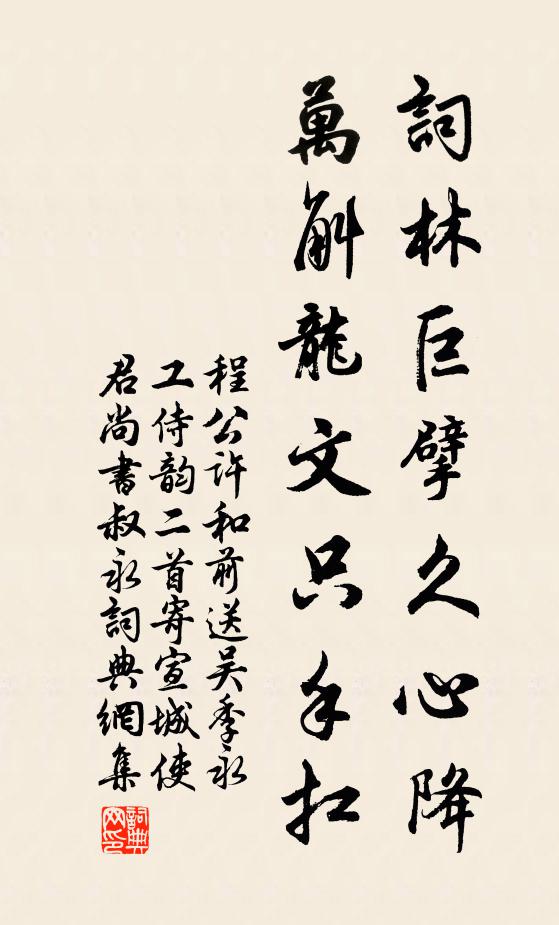 詞林巨擘久心降
萬斛龍文只手扛
程公許和前送吴季永
工侍韵二首寄宣城使
君尚書叔永詞典網集
詞典
网印